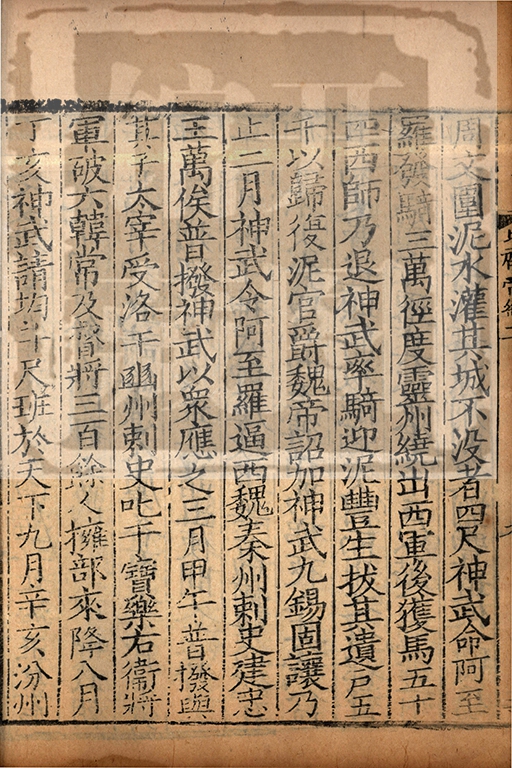 周文圍泥水灌其城不没者四尺神武命阿至
羅發騎三萬徑度靈州繞出西軍後獲馬五十
匹西師乃退神武率騎迎泥豐生拔其遺户五
千以歸復泥官爵魏帝詔加神武九錫固讓乃
止二月神武令阿至羅逼西魏秦州刺史建忠
王萬俟普撥神武以衆應之三月甲午普撥與
其子太宰受洛干豳州刺史叱干寶樂右衛將
軍破六韓常及督將三百餘人擁部來降八月
丁亥神武請均斗尺班於天下九月辛亥汾州